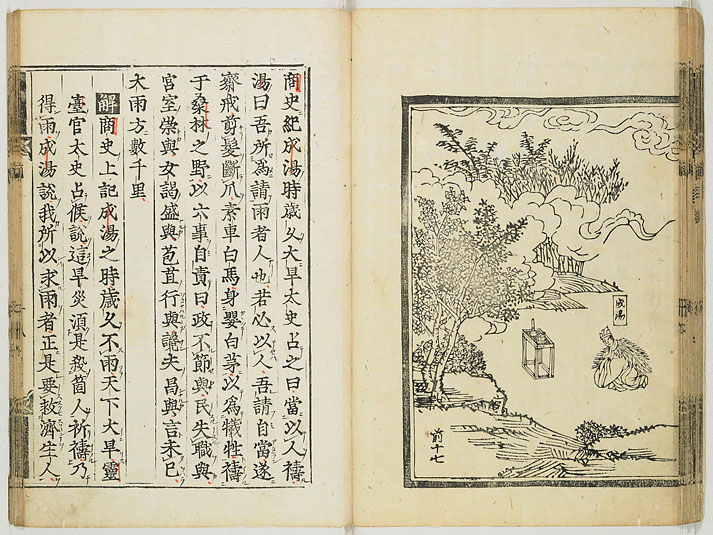 成湯
前十七
商史紀成湯時歲久大旱太史占之曰當以人禱
湯曰吾所爲請雨者人也若必以人吾請自當遂
齋戒剪髮斷爪素車白馬身嬰白茅以爲犧牲禱
于桑林之野以六事自責曰政不節與民失職與
宮室崇與女謁盛與苞苴行與讒夫昌與言未已
大雨方數千里
解商史上記成湯之時歲久不雨天下大旱靈
臺官太史占候說這旱災湏是殺箇人祈禱乃
得雨成湯說我所以求雨者正是要救濟生人